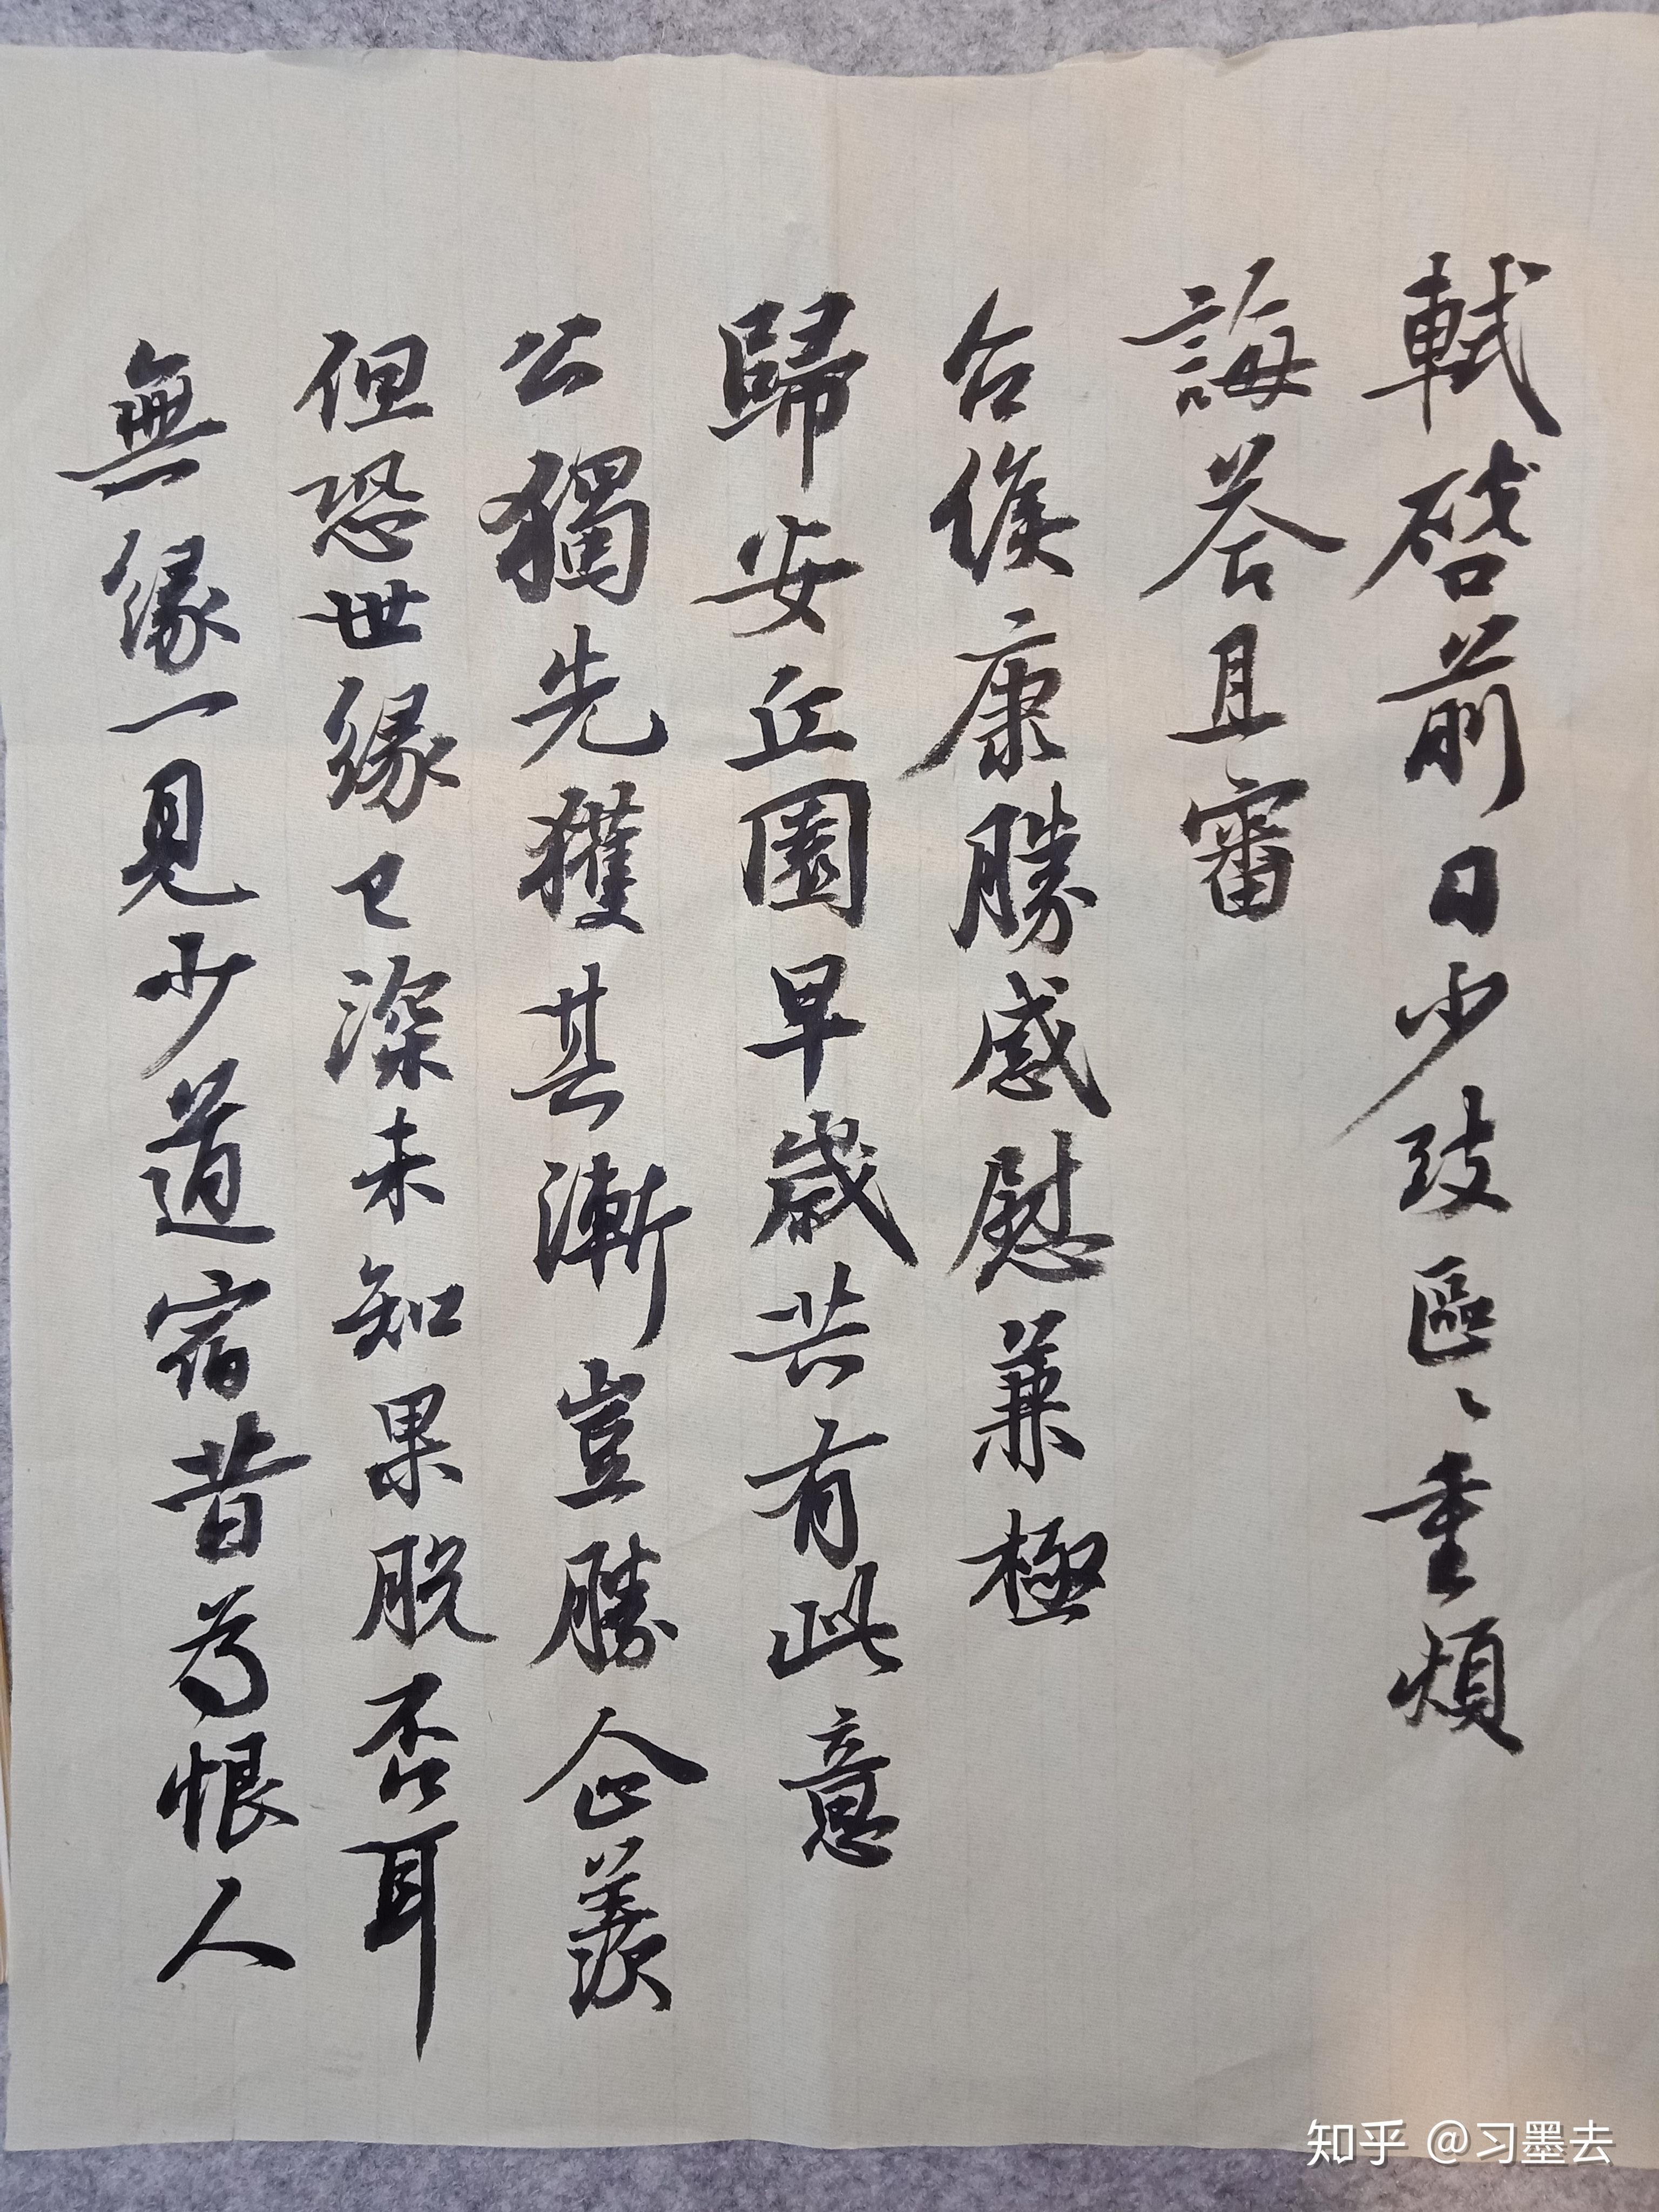 軾啓前日少致區〻重煩
誨答且審
台候康勝感慰兼極
歸安丘園早歲共有此意
公獨先獲其漸豈勝企羨
但恐世緣已深未知果脫否耳
無緣一見少道宿昔為恨人
知乎 @习墨去